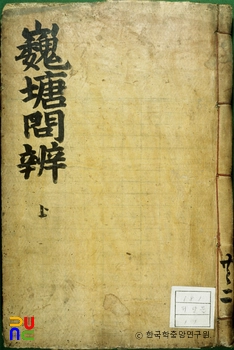 巍塘問辨
上
ⓒ 한국학중앙연구원